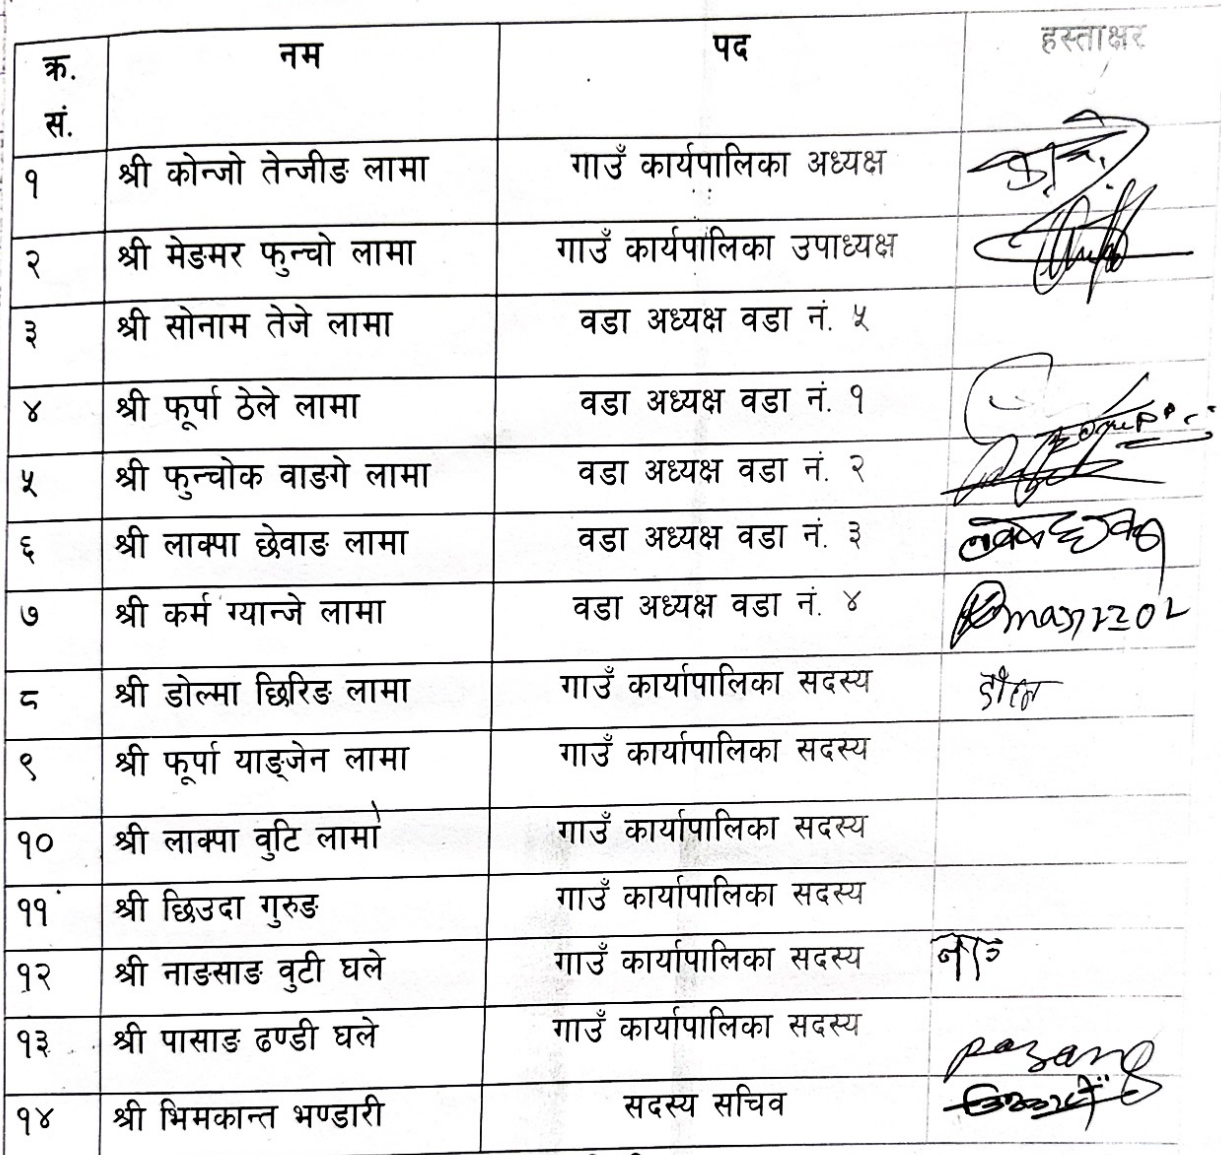 क्र. सं. नम पद हस्ताक्षर
१ श्री कोन्जो तेन्जीङ लामा गाउँ कार्यपालिका अध्यक्ष
२ श्री मेङमर फुन्चो लामा गाउँ कार्यपालिका उपाध्यक्ष
३ श्री सोनाम तेजे लामा वडा अध्यक्ष वडा नं. ५
४ श्री फूर्पा ठेले लामा वडा अध्यक्ष वडा नं. १
५ श्री फुन्चोक वाङगे लामा वडा अध्यक्ष वडा नं. २
६ श्री लाक्पा छेवाङ लामा वडा अध्यक्ष वडा नं. ३
७ श्री कर्म ग्यान्जे लामा वडा अध्यक्ष वडा नं. ४
८ श्री डोल्मा छिरिङ लामा गाउँ कार्यापालिका सदस्य
९ श्री फूर्पा याङ्जेन लामा गाउँ कार्यापालिका सदस्य
१० श्री लाक्पा वुटि लामो गाउँ कार्यापालिका सदस्य
११ श्री छिउदा गुरुङ गाउँ कार्यापालिका सदस्य
१२ श्री नाङसाङ वुटी घले गाउँ कार्यापालिका सदस्य
१३ श्री पासाङ ढण्डी घले गाउँ कार्यापालिका सदस्य pasang
१४ श्री भिमकान्त भण्डारी सदस्य सचिव